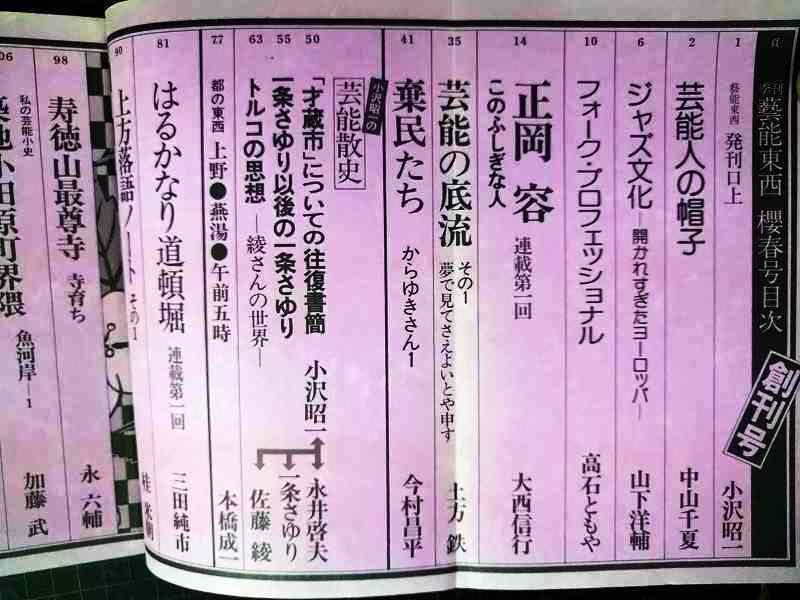 頁
季刊 藝能東西 櫻春号目次
創刊号
1 藝能東西 発刊口上 小沢昭一
2 芸能人の帽子 中山千夏
6 ジャズ文化 ―開かれすぎたヨーロッパ― 山下洋輔
10 フォーク・プロフェッショナル 高石ともや
14 正岡 容 このふしぎな人 連載第一回 大西信行
35 芸能の底流 その1 夢で見てさえよいとや申す 土方 鉄
41 棄民たち からゆきさん1 今村昌平
小沢昭一の 芸能散史
50 「才蔵市」についての往復書簡 小沢昭一 永井啓夫
55 一条さゆり以後の一条さゆり 一条さゆり
63 トルコの思想 ―綾さんの世界― 佐藤 綾
77 都の東西 上野●燕湯●午前五時 本橋成一
81 はるかなり道頓堀 連載第一回 三田純市
90 上方落語ノート その1 桂 米朝
98 寿徳山最尊寺 寺育ち 永 六輔
06 私の芸能小史 築地小田原町界隈 魚河岸―1 加藤 武